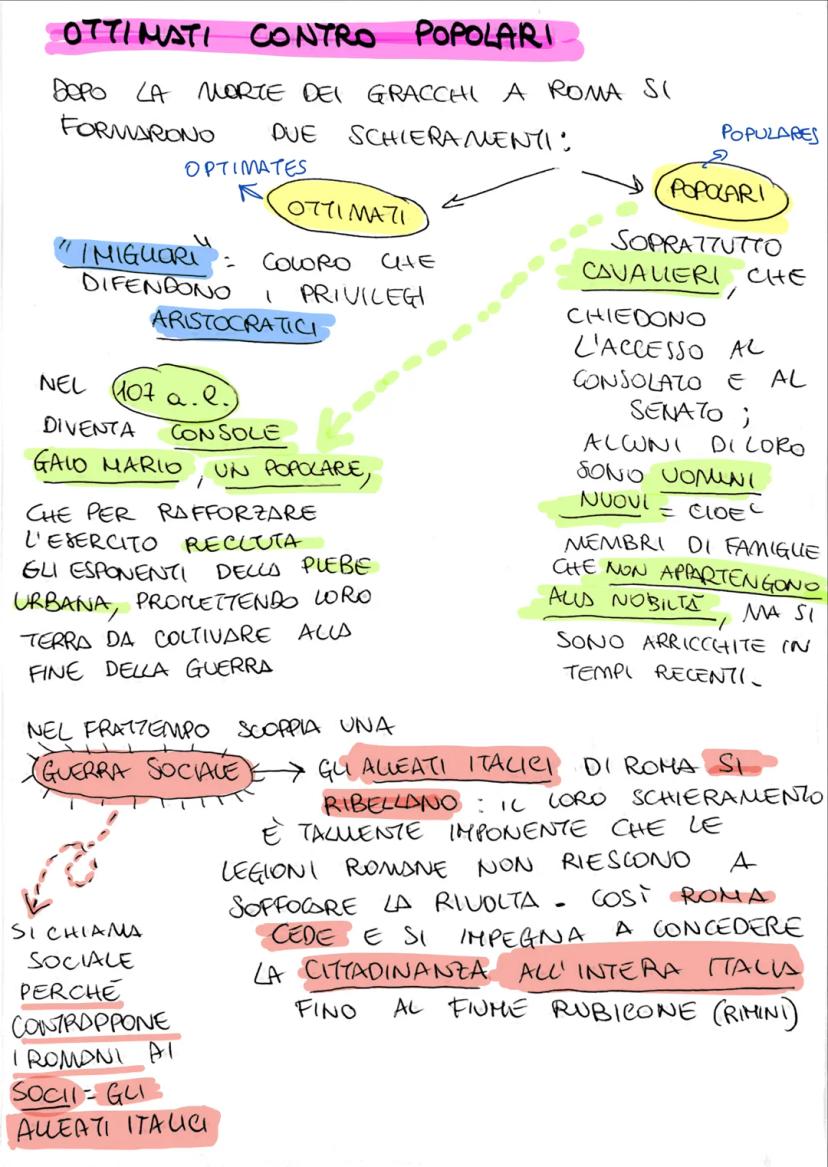 OTTIMATI CONTRO POPOLARI
DOPO LA MORTE DEI GRACCHI A ROMA SI
FORMARONO DUE SCHIERAMENTI:
OPTIMATES
OTTIMATI
"I MIGLIORI" = COLORO CHE
DIFENDONO I PRIVILEGI
ARISTOCRATICI
POPULARES
POPOLARI
SOPRATTUTTO
CAVALIERI, CHE
CHIEDONO
L'ACCESSO AL
CONSOLATO E AL
SENATO;
ALCUNI DI LORO
SONO UOMINI
NUOVI = CIOÈ
MEMBRI DI FAMIGLIE
CHE NON APPARTENGONO
ALLA NOBILTÀ, MA SI
SONO ARRICCHITE IN
TEMPI RECENTI.
NEL 107 a.C.
DIVENTA CONSOLE
GAIO MARIO, UN POPOLARE,
CHE PER RAFFORZARE
L'ESERCITO RECLUTA
GLI ESPONENTI DELLA PLEBE
URBANA, PROMETTENDO LORO
TERRA DA COLTIVARE ALLA
FINE DELLA GUERRA
NEL FRATTEMPO SCOPPIA UNA
GUERRA SOCIALE → GLI ALLEATI ITALICI DI ROMA SI
RIBELLANO: IL LORO SCHIERAMENTO
È TALMENTE IMPONENTE CHE LE
LEGIONI ROMANE NON RIESCONO A
SOFFOCARE LA RIVOLTA. COSÌ ROMA
CEDE E SI IMPEGNA A CONCEDERE
LA CITTADINANZA ALL'INTERA ITALIA
FINO AL FIUME RUBICONE (RIMINI)
SI CHIAMA
SOCIALE
PERCHÉ
CONTRAPPONE
I ROMANI AI
SOCII = GLI
ALLEATI ITALICI